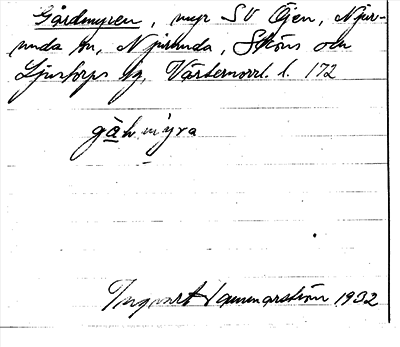 Gårdmyren, myr SV Öjen, Njur-
unda sn, Njurunda, Sköns och
Ljustorps tg, Västernorrl. l. 172
gàhmyra
Ingvart Hammarström 1932